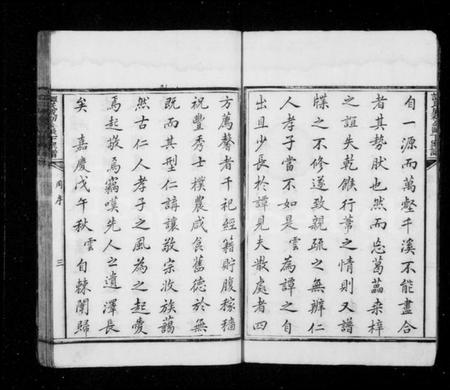 自一源而萬壑千溪不能盡合
者其勢肰也然而忘葛藟桑梓
之誼失乾餱行葦之情則又譜
牒之不修遂致親疏之無辨仁
人孝子當不如是雲為譚之自
出且少長於譚見夫散處者四
方萬馨者千祀經籍貯腹稼穡
祝豐秀士樸農咸食舊德於無
既而其型仁講讓敬宗收族藹
然古仁人孝子之風為之起愛
焉起敬焉竊嘆先人之遺澤長
矣 嘉慶戊午秋雲自棘闈歸
周序
三